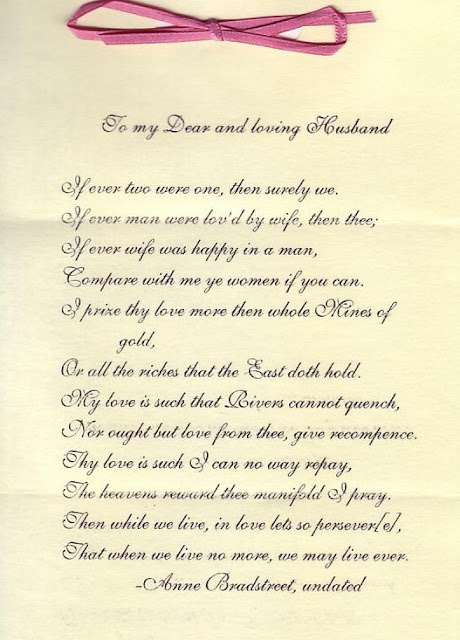 To my Dear and loving Husband
If ever two were one, then surely we.
If ever man were lov'd by wife, then thee;
If ever wife was happy in a man,
Compare with me ye women if you can.
I prize thy love more then whole Mines of
gold,
Or all the riches that the East doth hold.
My love is such that Rivers cannot quench,
Nor ought but love from thee, give recompence.
Thy love is such I can no way repay,
The heavens reward thee manifold I pray.
Then while we live, in love lets so persever[e],
That when we live no more, we may live ever.
-Anne Bradstreet, undated